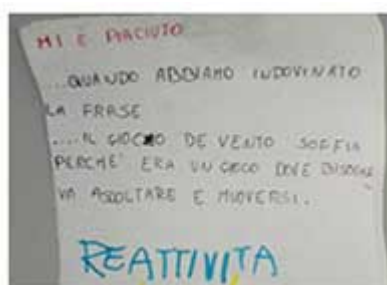 MI E PIACIUTO
...QUANDO ABBIAMO INDOVINATO
LA FRASE
....IL GIOCO DE VENTO SOFFIA
PERCHE' ERA UN GIOCO DOVE BISOGNA
VA ASCOLTARE E MUOVERSI.
REATTIVITA